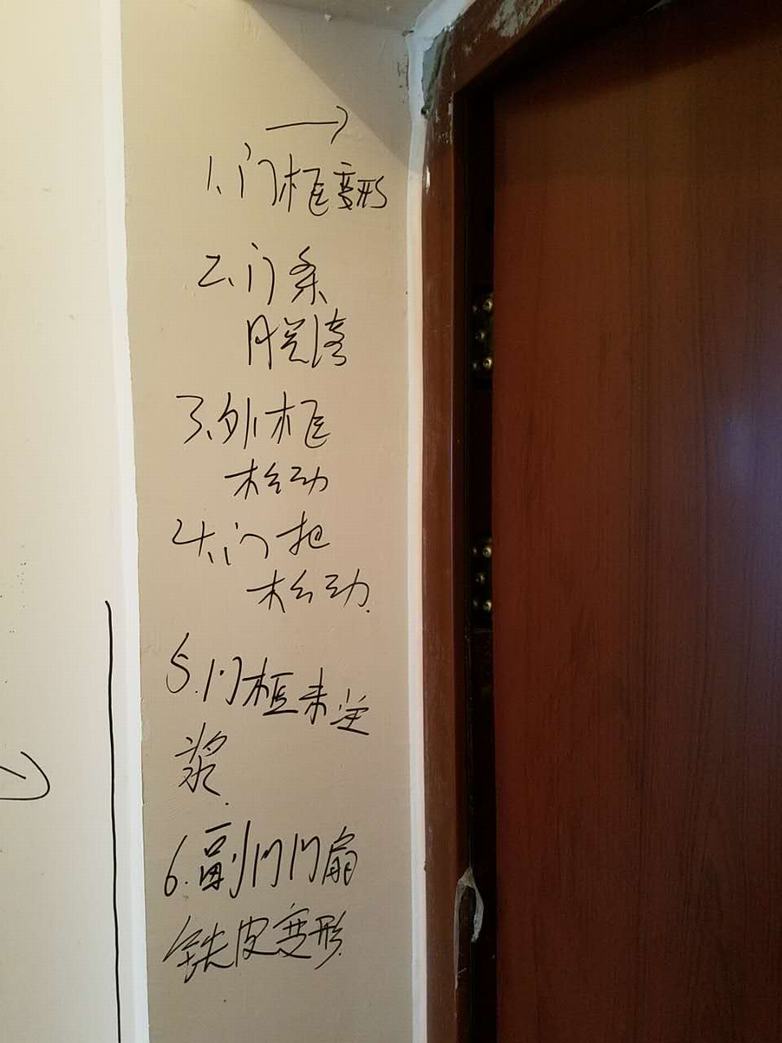 1.门框变形
2.门条
脱落
3.外框
松动
4.门把
松动.
5.门框未定
浆.
6.副门门扇
铁皮变形.